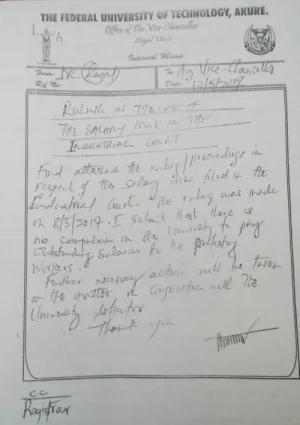 THE FEDERAL UNIVERSITY OF TECHNOLOGY, AKURE.
Office of The Vice-Chancellor
Legal Unit
Internal Memo
From: (Legal) To: Ag. Vice-Chancellor
Ref No: Date: 12/5/2017
RULING IN THE CASE OF
THE SALARY ISSUE IN THE
INDUSTRIAL COURT
Find attached the ruling/proceedings in
respect of the salary issue filed @ the
Industrial Court. The ruling was made
on 8/5/2017. I submit that there is
no compulsion on the University to pay
Outstanding Salaries to the
Workers.
Further necessary action will be taken
on the matter in conjunction with the
University Solicitor
Thank you
cc
Registrar